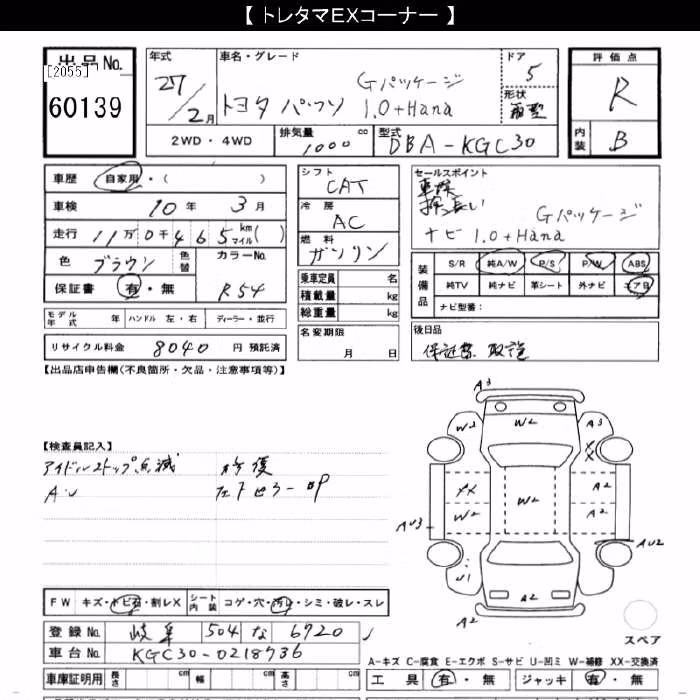 【 トレタマEXコーナー 】
出品No.
[2055]
60139
年式
27/2月
車名・グレード
トヨタ パッソ
Gパッケージ
1.0+Hana
ドア
5
形状
評価点
R
内装
B
2WD ・ 4WD
排気量
1000 cc
型式
DBA-KGC30
車歴
自家用・( )
車検
10年 3月
走行
11万0千465 km マイル( )
色
ブラウン
色替
カラーNo.
R54
保証書
有・無
モデル年式
年
ハンドル
左・右
ディーラー・並行
リサイクル料金
8040 円 預託済
シフト
CAT
冷房
AC
燃料
ガソリン
乗車定員 名
積載量 kg
総重量 kg
名変期限
月 日
セールスポイント
車検
Gパッケージ
ナビ 1.0+Hana
装備品
S/R 純A/W P/S P/W ABS
純TV 純ナビ 革シート 外ナビ エアB
ナビ型番:
後日品
保証書 取説
【出品店申告欄(不良箇所・欠品・注意事項等)】
【検査員記入】
アイドルストップ点滅
修復
A3
W2
W2
A3
XX
XX
A2
W2
W2
A2
AU3
AU2
U1
A2
スペア
FW
キズ・トビ石・割レX
シート内装
コゲ・穴・汚レ・シミ・破レ・スレ
登録No.
岐阜 504 な 6720
車台No.
KGC30-0218736
車庫証明用
長さ cm
幅 cm
高さ cm
A-キズ C-腐食 E-エクボ S-サビ U-凹ミ W-補修 XX-交換済
工具
有・無
ジャッキ
有・無